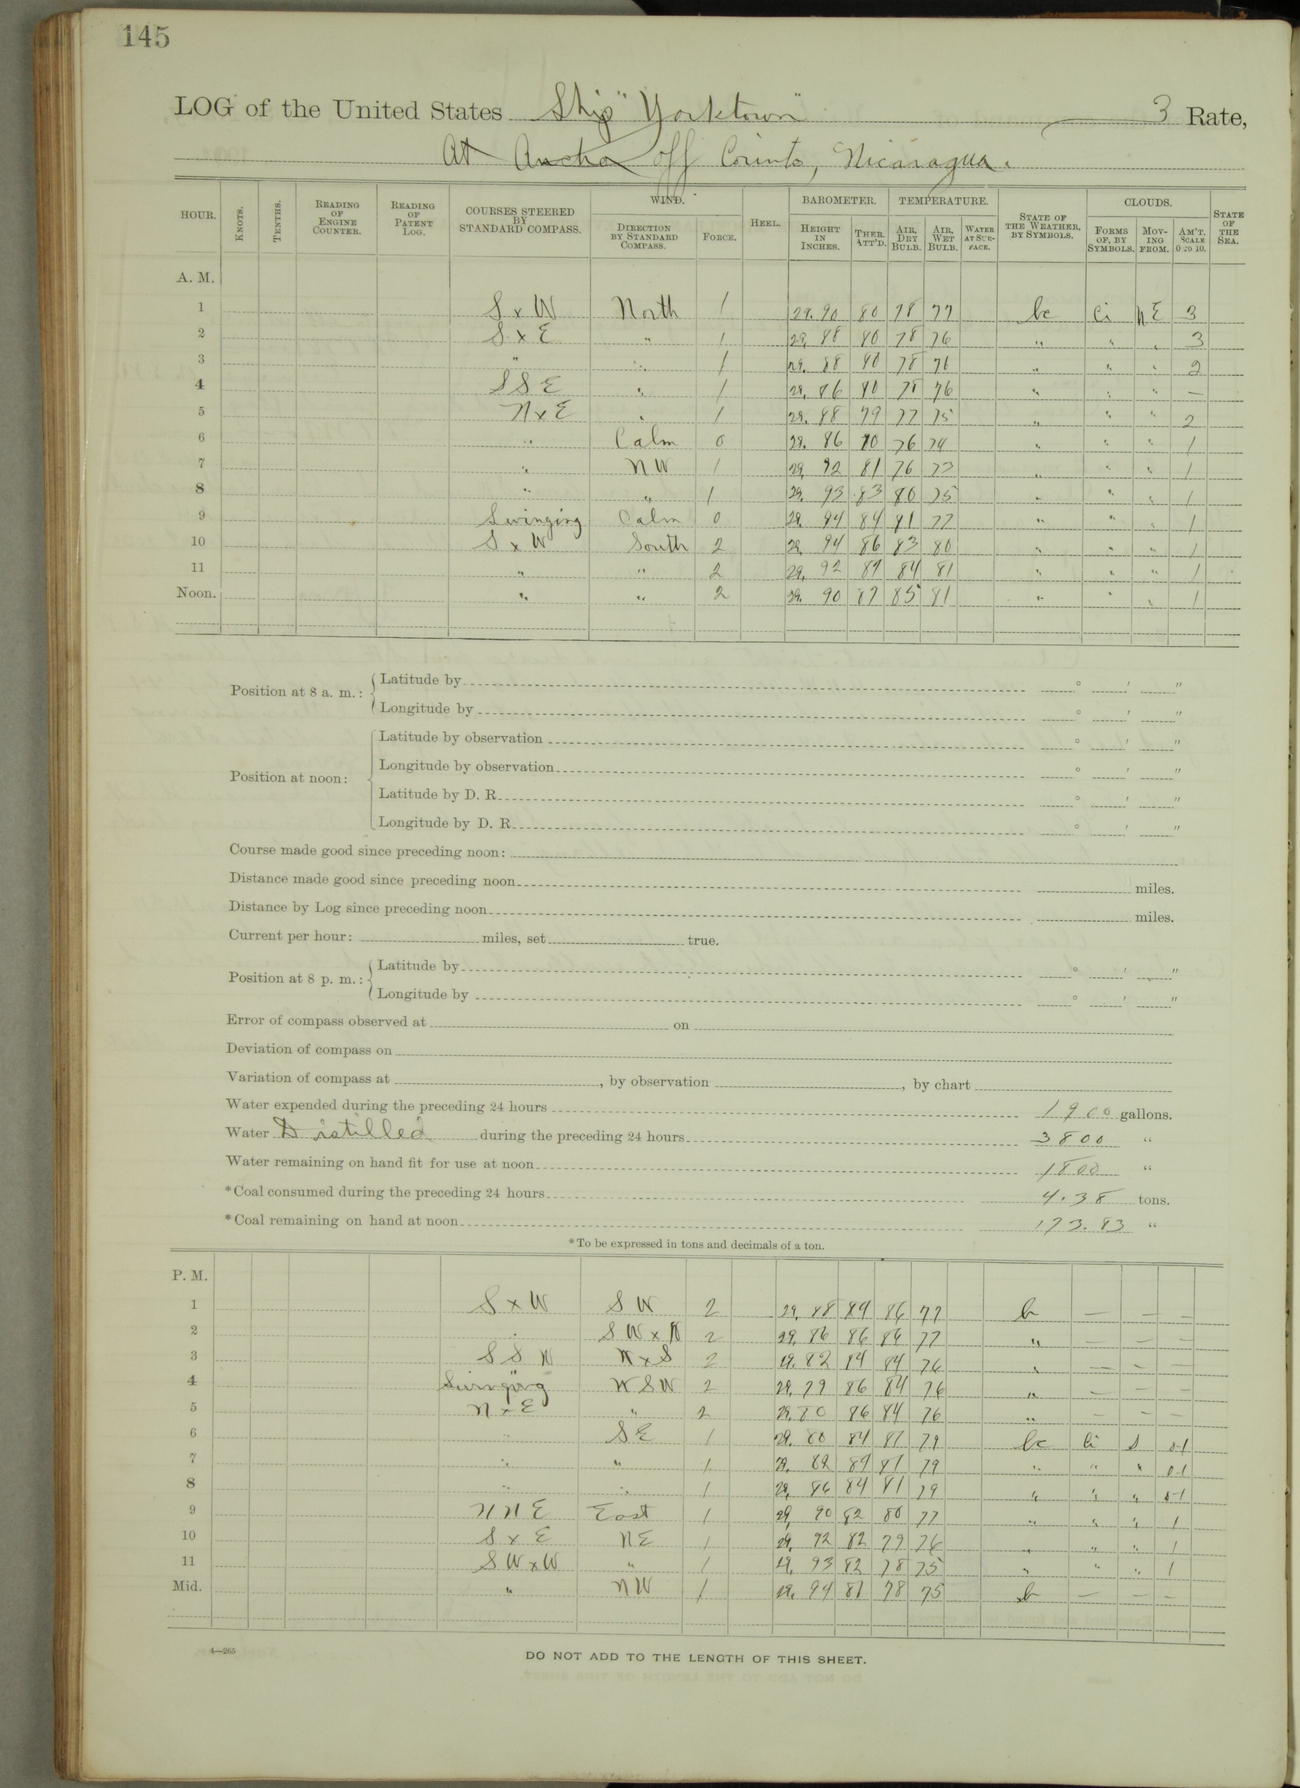 145
LOG of the United States Ship "Yorktown" 3 Rate,
At Anchor off Corinto, Nicaragua.
HOUR. KNOTS. TENTHS. READING OF ENGINE COUNTER. READING OF PATENT LOG. COURSES STEERED BY STANDARD COMPASS. WIND. DIRECTION BY STANDARD COMPASS. FORCE. HEEL. BAROMETER. HEIGHT IN INCHES. THER. ATT'D. TEMPERATURE. AIR, DRY BULB. AIR, WET BULB. WATER AT SURFACE. STATE OF THE WEATHER, BY SYMBOLS. CLOUDS. FORMS OF, BY SYMBOLS. MOVING FROM. AM'T. SCALE 0 TO 10. STATE OF THE SEA.
A. M.
1 S x W North 1 29.90 80 78 77 bc Ci NE 3
2 S x E " 1 29.88 80 78 76 " " " 3
3 " " 1 29.88 80 78 76 " " " 2
4 SSE " 1 29.86 80 78 76 " " " —
5 N x E " 1 29.88 79 77 75 " " " 2
6 " Calm 0 29.86 80 76 74 " " " 1
7 " NW 1 29.92 81 76 73 " " " 1
8 " " 1 29.93 83 80 75 " " " 1
9 Swinging Calm 0 29.94 84 81 77 " " " 1
10 S x W South 2 29.94 86 83 80 " " " 1
11 " " 2 29.92 87 84 81 " " " 1
Noon. " " 2 29.90 87 85 81 " " " 1
Position at 8 a. m.: Latitude by ° ' "
Longitude by ° ' "
Position at noon: Latitude by observation ° ' "
Longitude by observation ° ' "
Latitude by D. R. ° ' "
Longitude by D. R. ° ' "
Course made good since preceding noon:
Distance made good since preceding noon miles.
Distance by Log since preceding noon miles.
Current per hour: miles, set true.
Position at 8 p. m.: Latitude by ° ' "
Longitude by ° ' "
Error of compass observed at on
Deviation of compass on
Variation of compass at , by observation , by chart
Water expended during the preceding 24 hours 1900 gallons.
Water Distilled during the preceding 24 hours 3800 "
Water remaining on hand fit for use at noon 1800 "
*Coal consumed during the preceding 24 hours 4.38 tons.
*Coal remaining on hand at noon 173.83 "
*To be expressed in tons and decimals of a ton.
P. M.
1 S x W SW 2 29.88 84 86 77 b — — —
2 " SW x W 2 29.86 86 84 77 " — — —
3 SSW W x S 2 29.82 84 84 76 " — — —
4 Swinging WSW 2 29.79 86 84 76 " — — —
5 N x E " 2 29.80 86 84 76 " — — —
6 " SE 1 29.80 84 81 79 bc Ci S 0-1
7 " " 1 29.82 84 81 79 " " " 0-1
8 " " 1 29.86 84 81 79 " " " 0-1
9 NNE East 1 29.90 82 80 77 " " " 1
10 S x E NE 1 29.92 82 79 76 " " " 1
11 SW x W " 1 29.93 82 78 75 " " " 1
Mid. " NW 1 29.94 81 78 75 b — — —
4—265
DO NOT ADD TO THE LENGTH OF THIS SHEET.